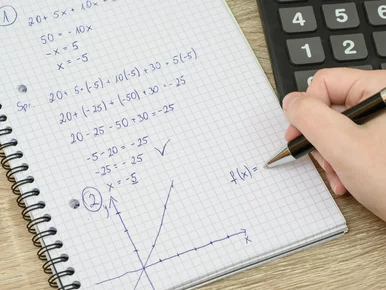 1
20 + 5x + 10x =
50 = -10x
-x = 5
x = -5
Spr.
20 + 5·(-5) + 10(-5) + 30 = 5(-5)
20 + (-25) + (-50) + 30 = -25
20 - 25 - 50 + 30 = -25
-5 - 20 = -25
-25 = -25 ✓
x = -5
2
y
x
f(x) =
4 5
1